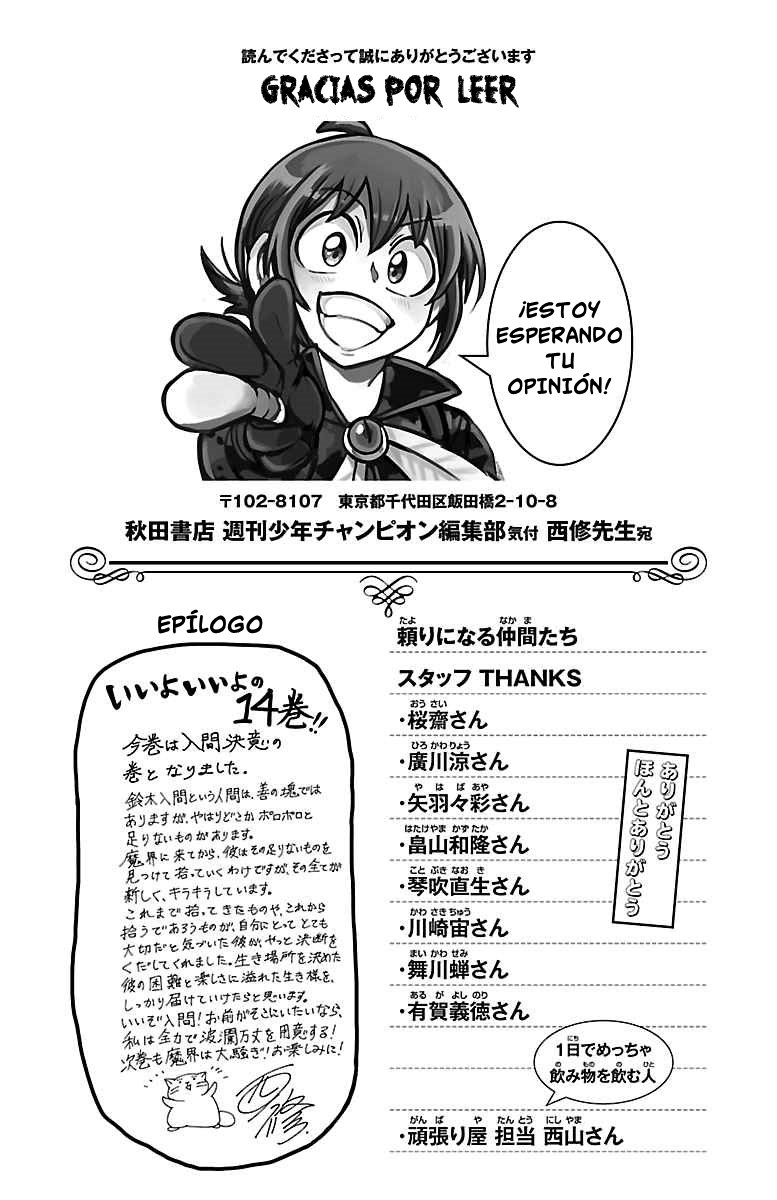 読んでくださって誠にありがとうございます
GRACIAS POR LEER
¡ESTOY
ESPERANDO
TU
OPINIÓN!
〒102-8107 東京都千代田区飯田橋2-10-8
秋田書店 週刊少年チャンピオン編集部気付 西修先生宛
EPÍLOGO
いいよいいよの
14巻!!
今巻は入間決意の
巻となりました。
鈴木入間という人間は、善の塊では
ありますが、やはりどこかポロポロと
足りないものがあります。
魔界に来てから、彼はその足りないものを
見つけて拾っていくわけですが、その全てが
新しく、キラキラしています。
これまで拾ってきたものや、これから
拾うであろうものが、自分にとってとても
大切だと気づいた彼が、やっと決断を
くだしてくれました。生き場所を決めた
彼の困難と楽しさに溢れた生き様を、
しっかり届けていけたらと思います。
いいぞ入間!お前がそこにいたいなら、
私は全力で波瀾万丈を用意する!
次巻も魔界は大騒ぎ!お楽しみに!
西修
たよ なかま
頼りになる仲間たち
スタッフ THANKS
おうさい
・桜齋さん
ひろかわりょう
・廣川涼さん
やはばあや
・矢羽々彩さん
はたけやまかずたか
・畠山和隆さん
ことぶきなおき
・琴吹直生さん
かわさきちゅう
・川崎宙さん
まいかわせみ
・舞川蝉さん
あるがよしのり
・有賀義徳さん
ありがとう
ほんとありがとう
にち
1日でめっちゃ
の もの の ひと
飲み物を飲む人
がんば や たんとう にしやま
・頑張り屋 担当 西山さん